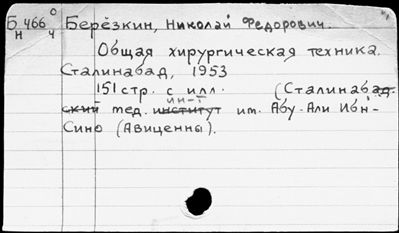 Б 466 Берёзкин, Николай Федорович.
Н 4
Общая хирургическая техника.
Сталинабад, 1953
151 стр. с илл. (Сталинабад-
ский мед. ин-т им. Абу-Али Ибн-
Сино (Авиценны).